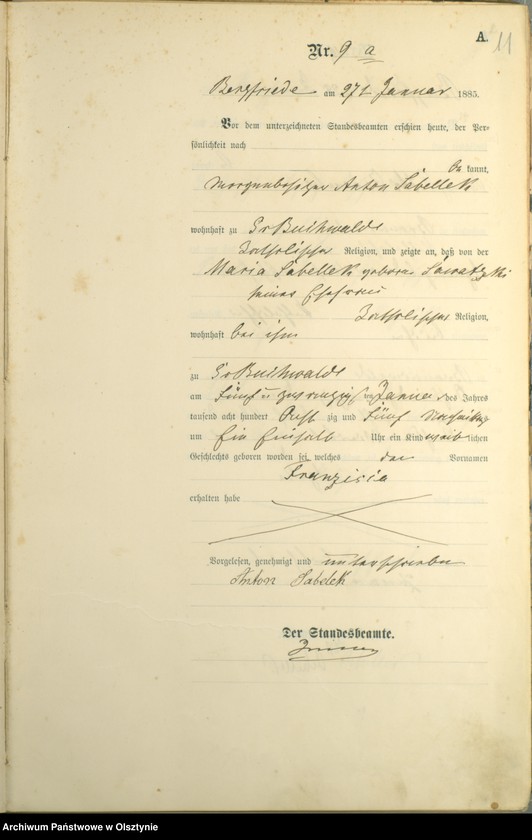 A. 11
Nr. 9 a
Bergfriede am 27t Januar 1885.
Vor dem unterzeichneten Standesbeamten erschien heute, der Per=
sönlichkeit nach
be kannt,
Morgenbesitzer Anton Sabellek
wohnhaft zu Gr Buchwalde
katholischer Religion, und zeigte an, daß von der
Maria Sabellek geborne Sawatzki
seiner Ehefrau
katholischer Religion,
wohnhaft bei ihm
zu Gr Buchwalde
am fünf u zwanzigsten Januar des Jahres
tausend acht hundert Acht zig und fünf Nachmittag
um Ein Einhalb Uhr ein Kind weib lichen
Geschlechts geboren worden sei, welches den Vornamen
Franzisca
erhalten habe
Vorgelesen, genehmigt und unterschrieben
Anton Sabelek
Der Standesbeamte.
Archiwum Państwowe w Olsztynie